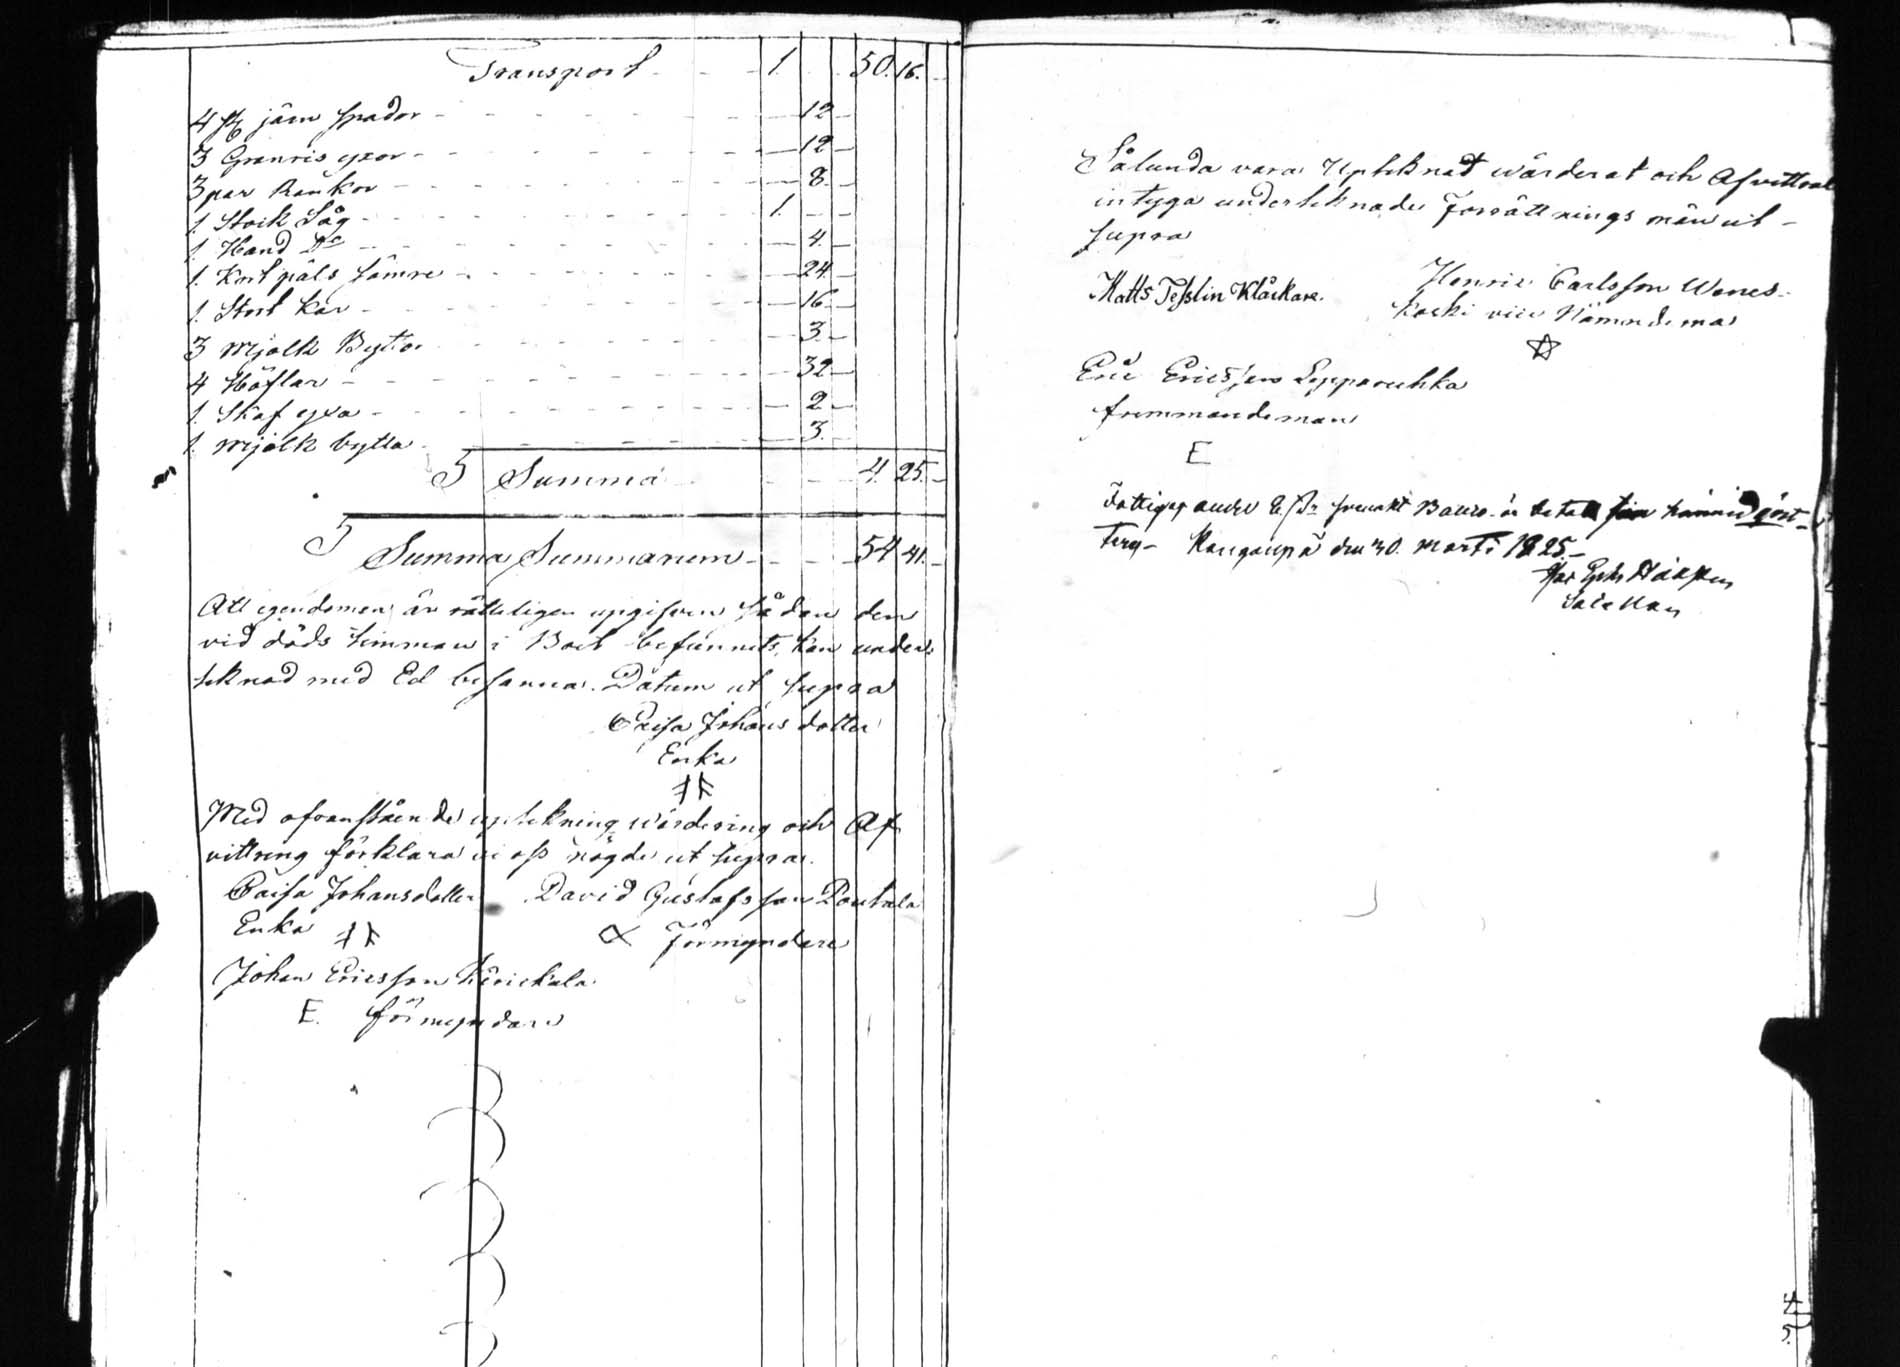 Transport - - - 1. 50. 16. -
4 st järn spador - - - 12 -
3 Granris yxor - - - 12 -
3 par Rankor - - - 8. -
1. Stock Såg - - - 1. - -
1. Hand Do - - - 4. -
1. Kort päls sämre - - - 24. -
1. Stort kar - - - 16. -
3 Mjölk Byttor - - - 3. -
4 Höflar - - - 32 -
1. Skaf yxa - - - 2 -
1. Mjölk bytta - - - 3. -
Summa - - - 4. 25. -
Summa Summarum - - - 54 41. -
Att egendomen är rätteligen upgifven sådan den
vid döds timman i Boet befunnits, kan under-
teknad med Ed besanna. Datum ut supra
Caisa Johans dotter
Enka
Med ofvanstående uptekning wärdering och Af
vittring förklara vi oss nögde ut supra.
Caisa Johansdotter David Gustafsson Poutala
Enka Förmyndare
Johan Ericsson
E. förmyndare
Sålunda vara Upteknat wärderat och Afvittrat
intyga underteknade Forrättnings män ut
supra
Matts Tesslin Klåckare.
Henric Carlsson Wenes-
koski vice Nämndeman
Eric Ericsson Lepparouhka
E
den 30. Marti 1825 -